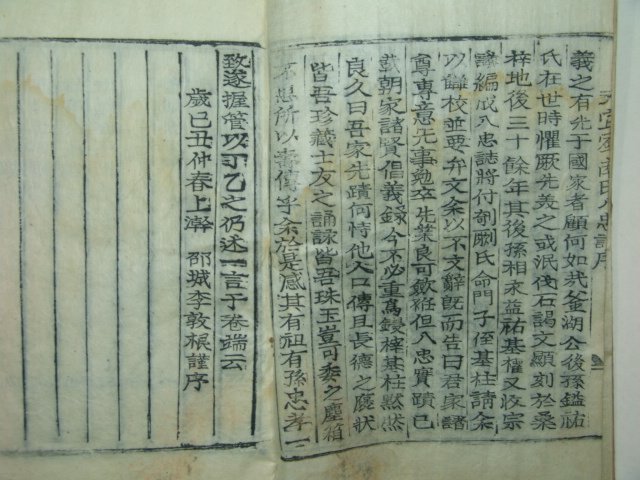 義之有先于國家者顧何如哉金湖公後孫鎰祐
氏在世時懼厥先美之或泯伐石謁文顯刻於桑
梓地後三十餘年其後孫相永益祐基權又收宗
譜編成八忠誌將付剞劂氏命門子侄基柱請余
以讎校並要弁文余以不文辭旣而告曰君家諸
尊專意先事勉卒先業良可欽袵但八忠實蹟已
載朝家諸賢倡義錄今不必重爲鋟梓基柱黙然
良久曰吾家先蹟何恃他人口傳且長德之慶狀
皆吾珍藏士友之誦詠皆吾珠玉豈可委之塵箱
不思所以壽傳乎余於是感其有祖有孫忠孝
致遂握管以丁乙之仍述一言于卷端云
歲已丑仲春上澣 邵城李敦根謹序